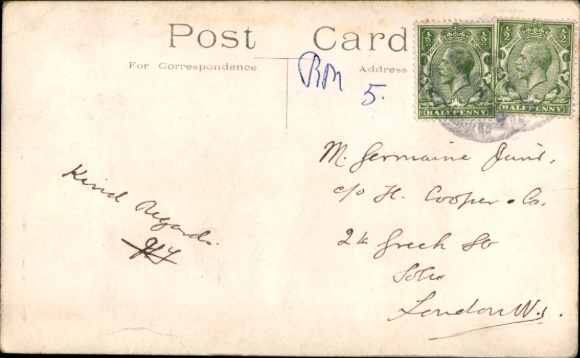 Post Card
For Correspondence
Address
Rm
5.
½ ½
HALFPENNY
½ ½
HALFPENNY
M. Germaine
c/o H. Cooper & Co.
24 Greek St
Soho
London W.1.
Kind Regards.